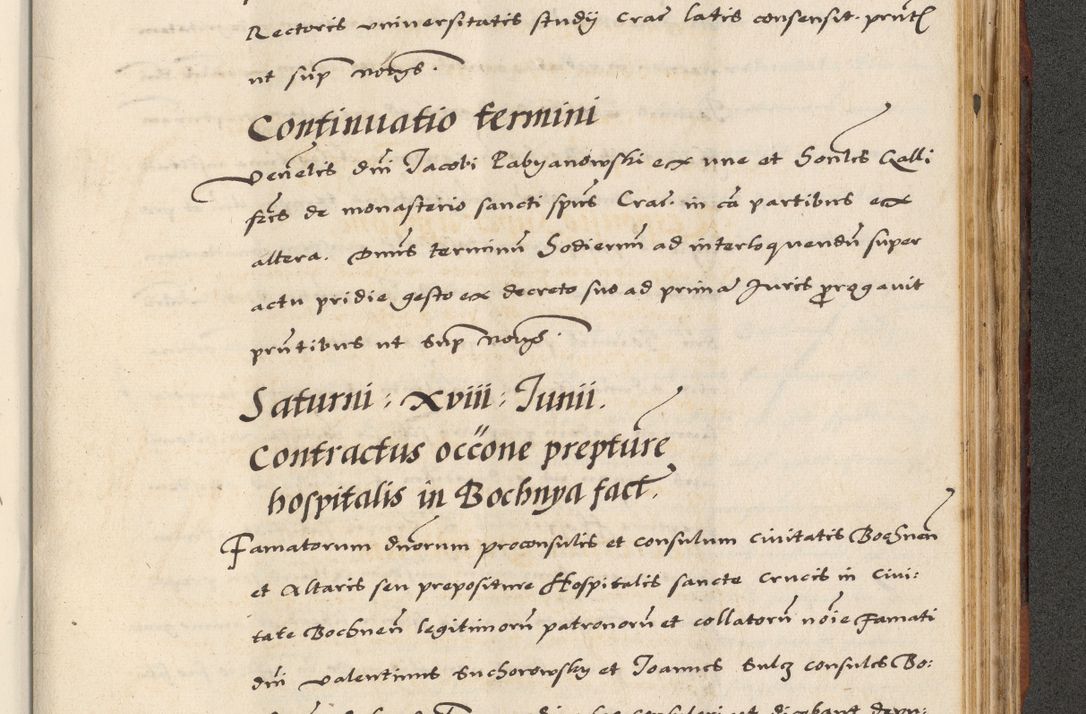 Rectoris universitatis studij Crac̃ latis consensit. pñt[ibus]
ut sup̃ no[ta]rijs.
Continuatio termini
Veñelis dñi Jacobi Babyanowski ex une et Hon̄lis Galli
fr̃is de monasterio sancti sp̃us Crac̃ in cã partibus ex
altera. Dñus terminũ hodiernũ ad interloquendũ super
actu pridie gesto ex decreto suo ad primã Juris prorogavit
pñtibus ut sup̃
Saturni : xviii : Junii.
Contractus occ̃one prept̃ure
hospitalis in Bochnya fact̃.
Famatorum dñorum proconsulis et consulum civitatis Bochneñ
et Altaris seu prepositure Hospitalis sancte Crucis in Civi:
tate Bochneñ legitimorũ patronorũ et collatorũ nõie Famati
dñi Valentinus Suchorowsky et Joannes Sulcz consules Bo: